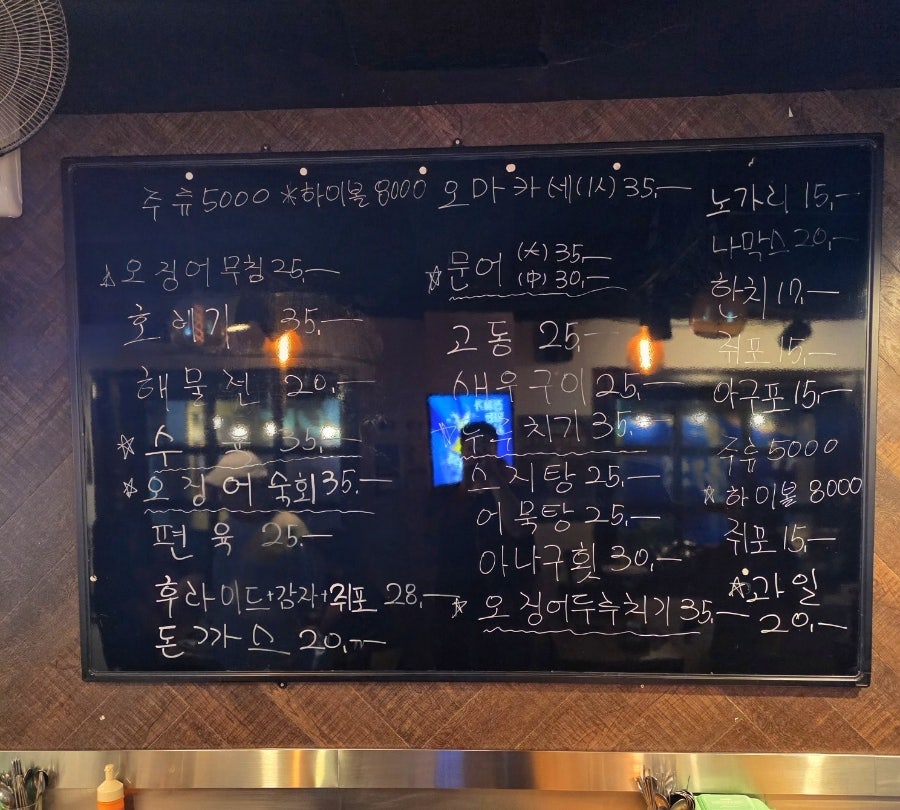 주류 5000 *하이볼 8000 오마카세(1人) 35,-
☆오징어무침 25,-
호래기 35,-
해물전 20,-
☆수육 35,-
☆오징어숙회 35,-
편육 25,-
후라이드+감자+쥐포 28,-
돈까스 20,-
☆문어 (大) 35,-
(中) 30,-
고동 25,-
새우구이 25,-
☆두루치기 35,-
스지탕 25,-
어묵탕 25,-
아나구횟 30,-
☆오징어두루치기 35,-
노가리 15,-
나막스 20,-
한치 17,-
쥐포 15,-
아구포 15,-
주류 5000
☆하이볼 8000
쥐포 15,-
☆과일
20,-